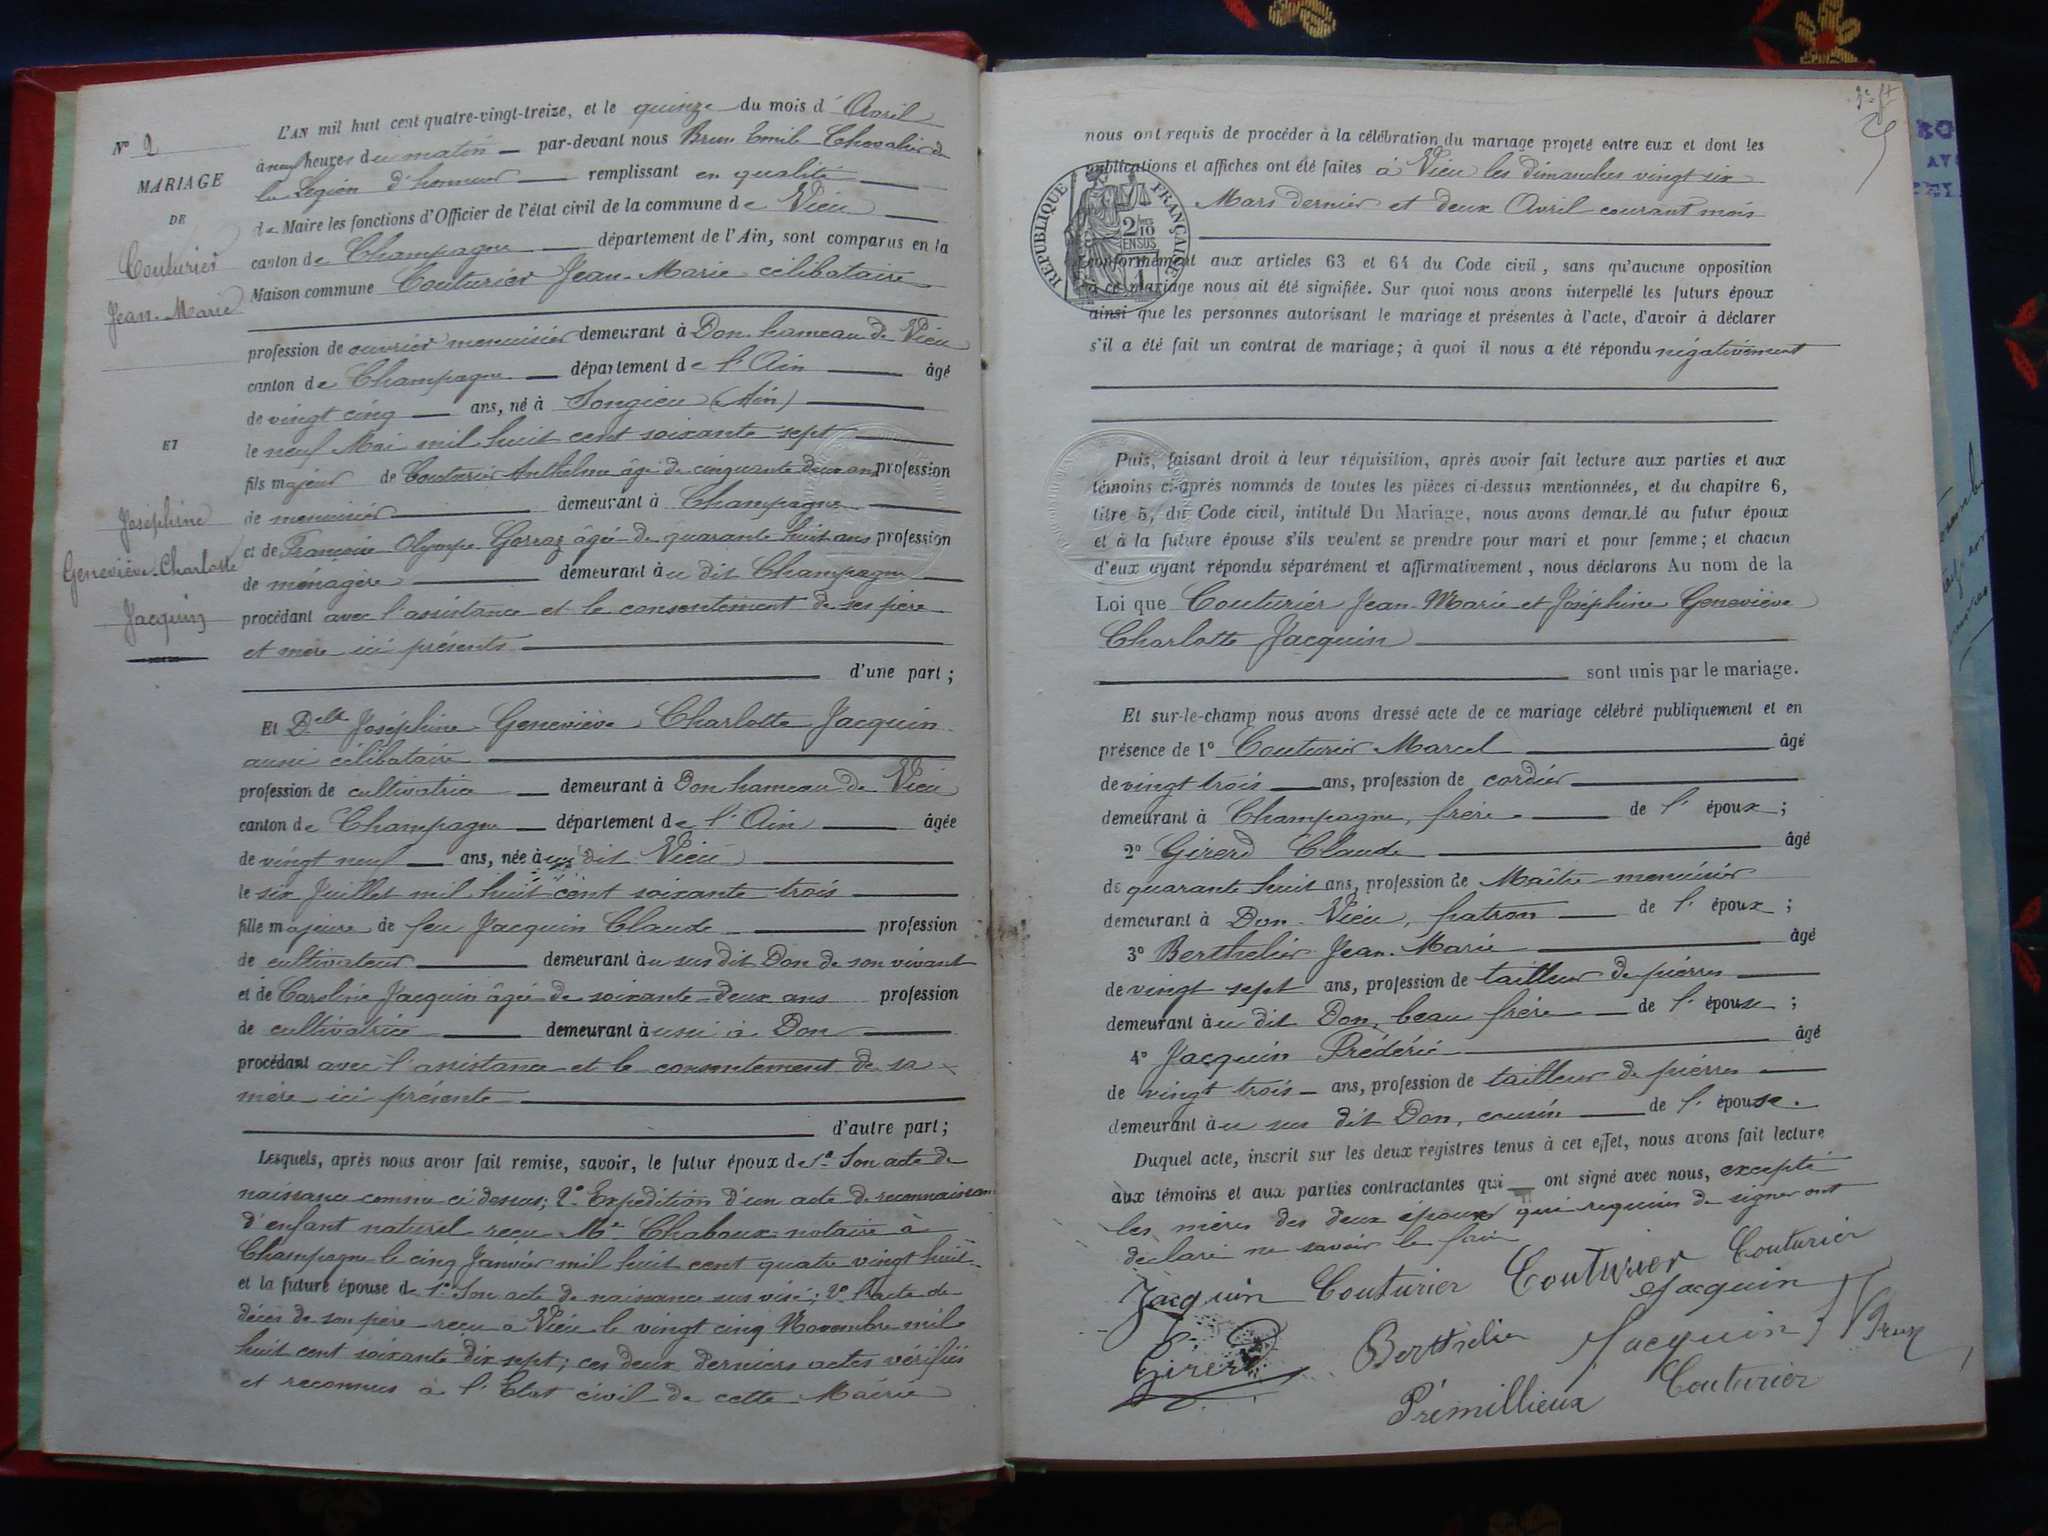 L'AN mil huit cent quatre-vingt-treize, et le quinze du mois d'Avril
N° 2
à neuf heures du matin par-devant nous Brun Emile Chevalier de
MARIAGE
la Légion d'honneur remplissant en qualité
DE
de Maire les fonctions d'Officier de l'état civil de la commune de Vieu
Couturier
canton de Champagne département de l'Ain, sont comparus en la
Jean-Marie
Maison commune Couturier Jean-Marie célibataire
profession de ouvrier menuisier demeurant à Don hameau de Vieu
canton de Champagne département de l'Ain âgé
de vingt cinq ans, né à Songieu (Ain)
ET
le neuf Mai mil huit cent soixante sept
fils majeur de Couturier Anthelme âgé de cinquante deux ans profession
de menuisier demeurant à Champagne
Joséphine
et de Françoise Olympe Gorraz âgée de quarante huit ans profession
Geneviève-Charlotte
de ménagère demeurant àu dit Champagne
Jacquin
procédant avec l'assistance et le consentement de ses père
et mère ici présents
d'une part ;
Et Delle Joséphine Geneviève Charlotte Jacquin
aussi célibataire
profession de cultivatrice demeurant à Don hameau de Vieu
canton de Champagne département de l'Ain âgée
de vingt neuf ans, née àu dit Vieu
le six Juillet mil huit cent soixante trois
fille majeure de feu Jacquin Claude profession
de cultivateur demeurant àu sus dit Don de son vivant
et de Caroline Jacquin âgée de soixante-deux ans profession
de cultivatrice demeurant àussi à Don
procédant avec l'assistance et le consentement de sa
mère ici présente
d'autre part ;
Lesquels, après nous avoir fait remise, savoir, le futur époux de 1° Son acte de
naissance comme ci dessus; 2° Expédition d'un acte de reconnaissance
d'enfant naturel recu Me Chaboux notaire à
Champagne le cinq Janvier mil huit cent quatre vingt huit
et la future épouse de 1° Son acte de naissance sus visé; 2° l'acte de
décès de son père recu à Vieu le vingt cinq Novembre mil
huit cent soixante dix sept; ces deux derniers actes vérifiés
et reconnus à l'Etat civil de cette Mairie
nous ont requis de procéder à la célébration du mariage projeté entre eux et dont les
publications et affiches ont été faites à Vieu les dimanches vingt six
Mars dernier et deux Avril courant mois
RÉPUBLIQUE FRANÇAISE
2/10
EN SUS
conformément aux articles 63 et 64 du Code civil, sans qu'aucune opposition
à ce mariage nous ait été signifiée. Sur quoi nous avons interpellé les futurs époux
ainsi que les personnes autorisant le mariage et présentes à l'acte, d'avoir à déclarer
s'il a été fait un contrat de mariage ; à quoi il nous a été répondu négativement
Puis, faisant droit à leur réquisition, après avoir fait lecture aux parties et aux
témoins ci-après nommés de toutes les pièces ci-dessus mentionnées, et du chapitre 6,
titre 5, du Code civil, intitulé Du Mariage, nous avons demandé au futur époux
et à la future épouse s'ils veulent se prendre pour mari et pour femme ; et chacun
d'eux ayant répondu séparément et affirmativement, nous déclarons Au nom de la
Loi que Couturier Jean-Marie et Joséphine Geneviève
Charlotte Jacquin
sont unis par le mariage.
Et sur-le-champ nous avons dressé acte de ce mariage célébré publiquement et en
présence de 1° Couturier Marcel âgé
de vingt trois ans, profession de cordier
demeurant à Champagne, frère de l'époux ;
2° Girerd Claude âgé
de quarante huit ans, profession de Maître-menuisier
demeurant à Don-Vieu, patron de l'époux ;
3° Berthelier Jean-Marie âgé
de vingt sept ans, profession de tailleur de pierres
demeurant àu dit Don, beau frère de l'épouse ;
4° Jacquin Frédéric âgé
de vingt trois ans, profession de tailleur de pierres
demeurant àu sus dit Don, cousin de l'épouse.
Duquel acte, inscrit sur les deux registres tenus à cet effet, nous avons fait lecture
aux témoins et aux parties contractantes qui ont signé avec nous, excepté
les mères des deux époux qui requises de signer ont
déclaré ne savoir le faire
Jacquin Couturier Couturier Couturier
Jacquin
Girerd Berthelier Jacquin f Brun
Prémillieux Couturier